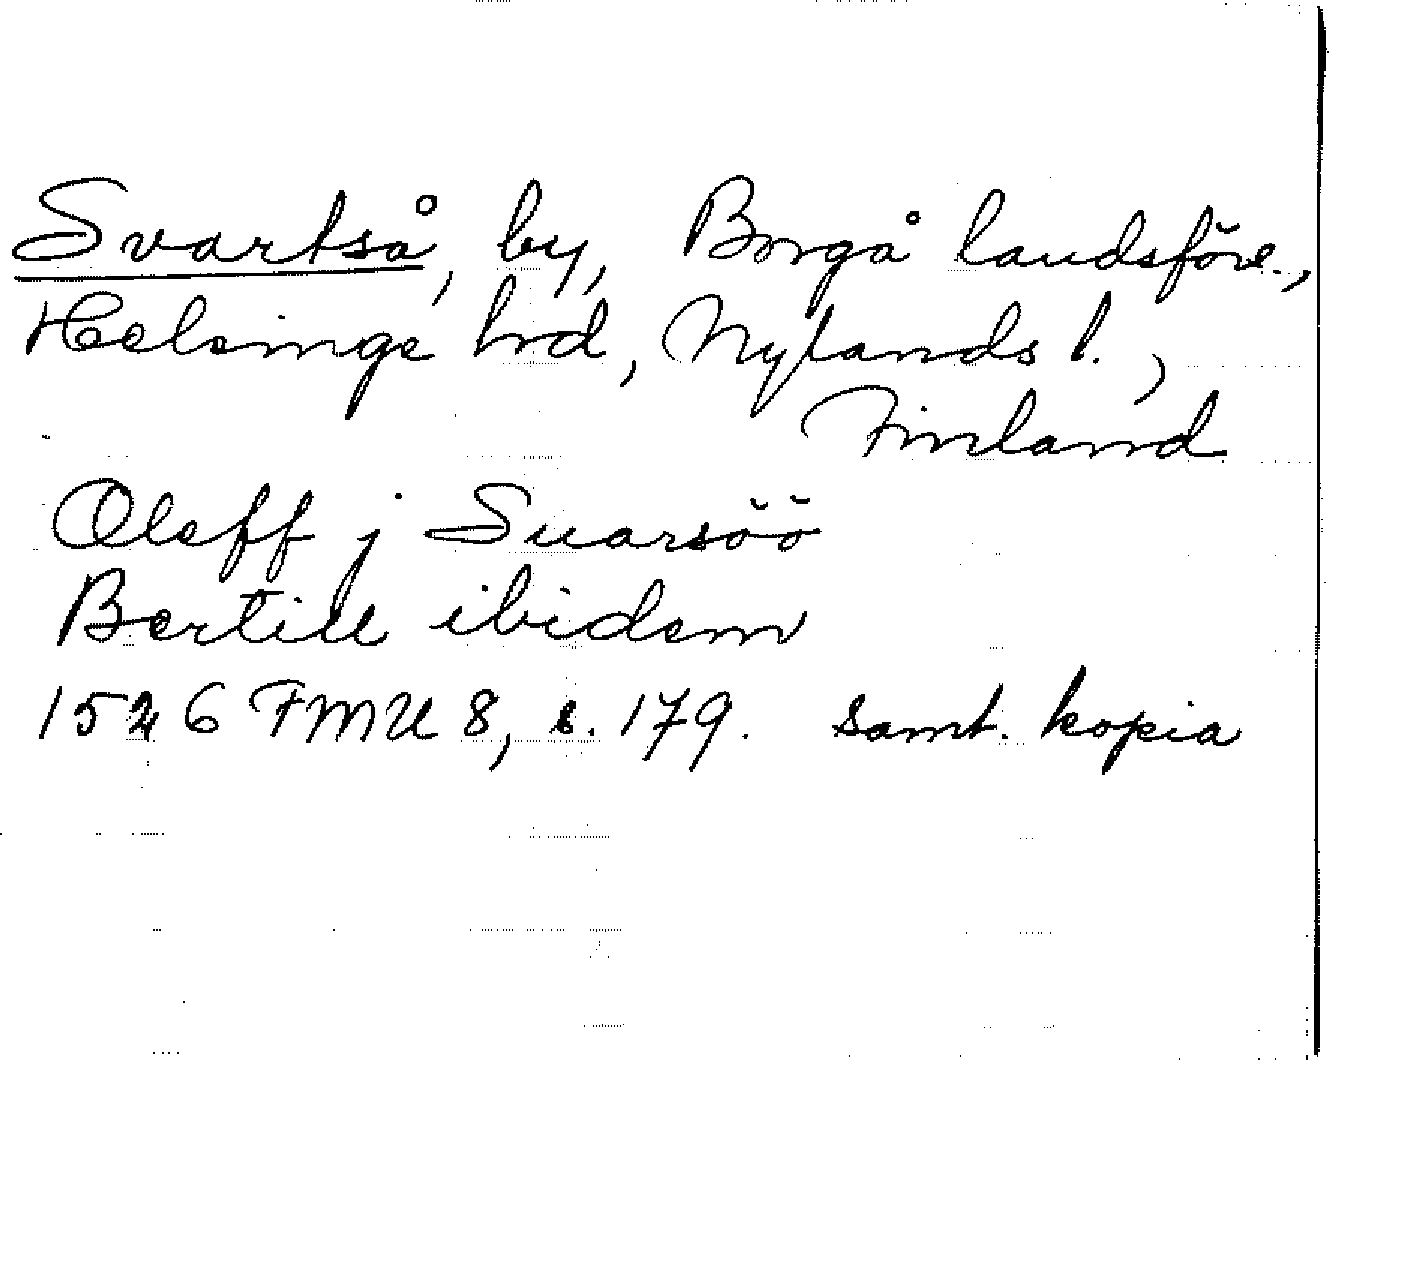 Svartså, by, Borgå landsförs.,
Helsinge hrd, Nylands l.,
Finland
Oleff j Suarsöö
Bertill ibidem
1526 FMU 8, s. 179. samt. kopia